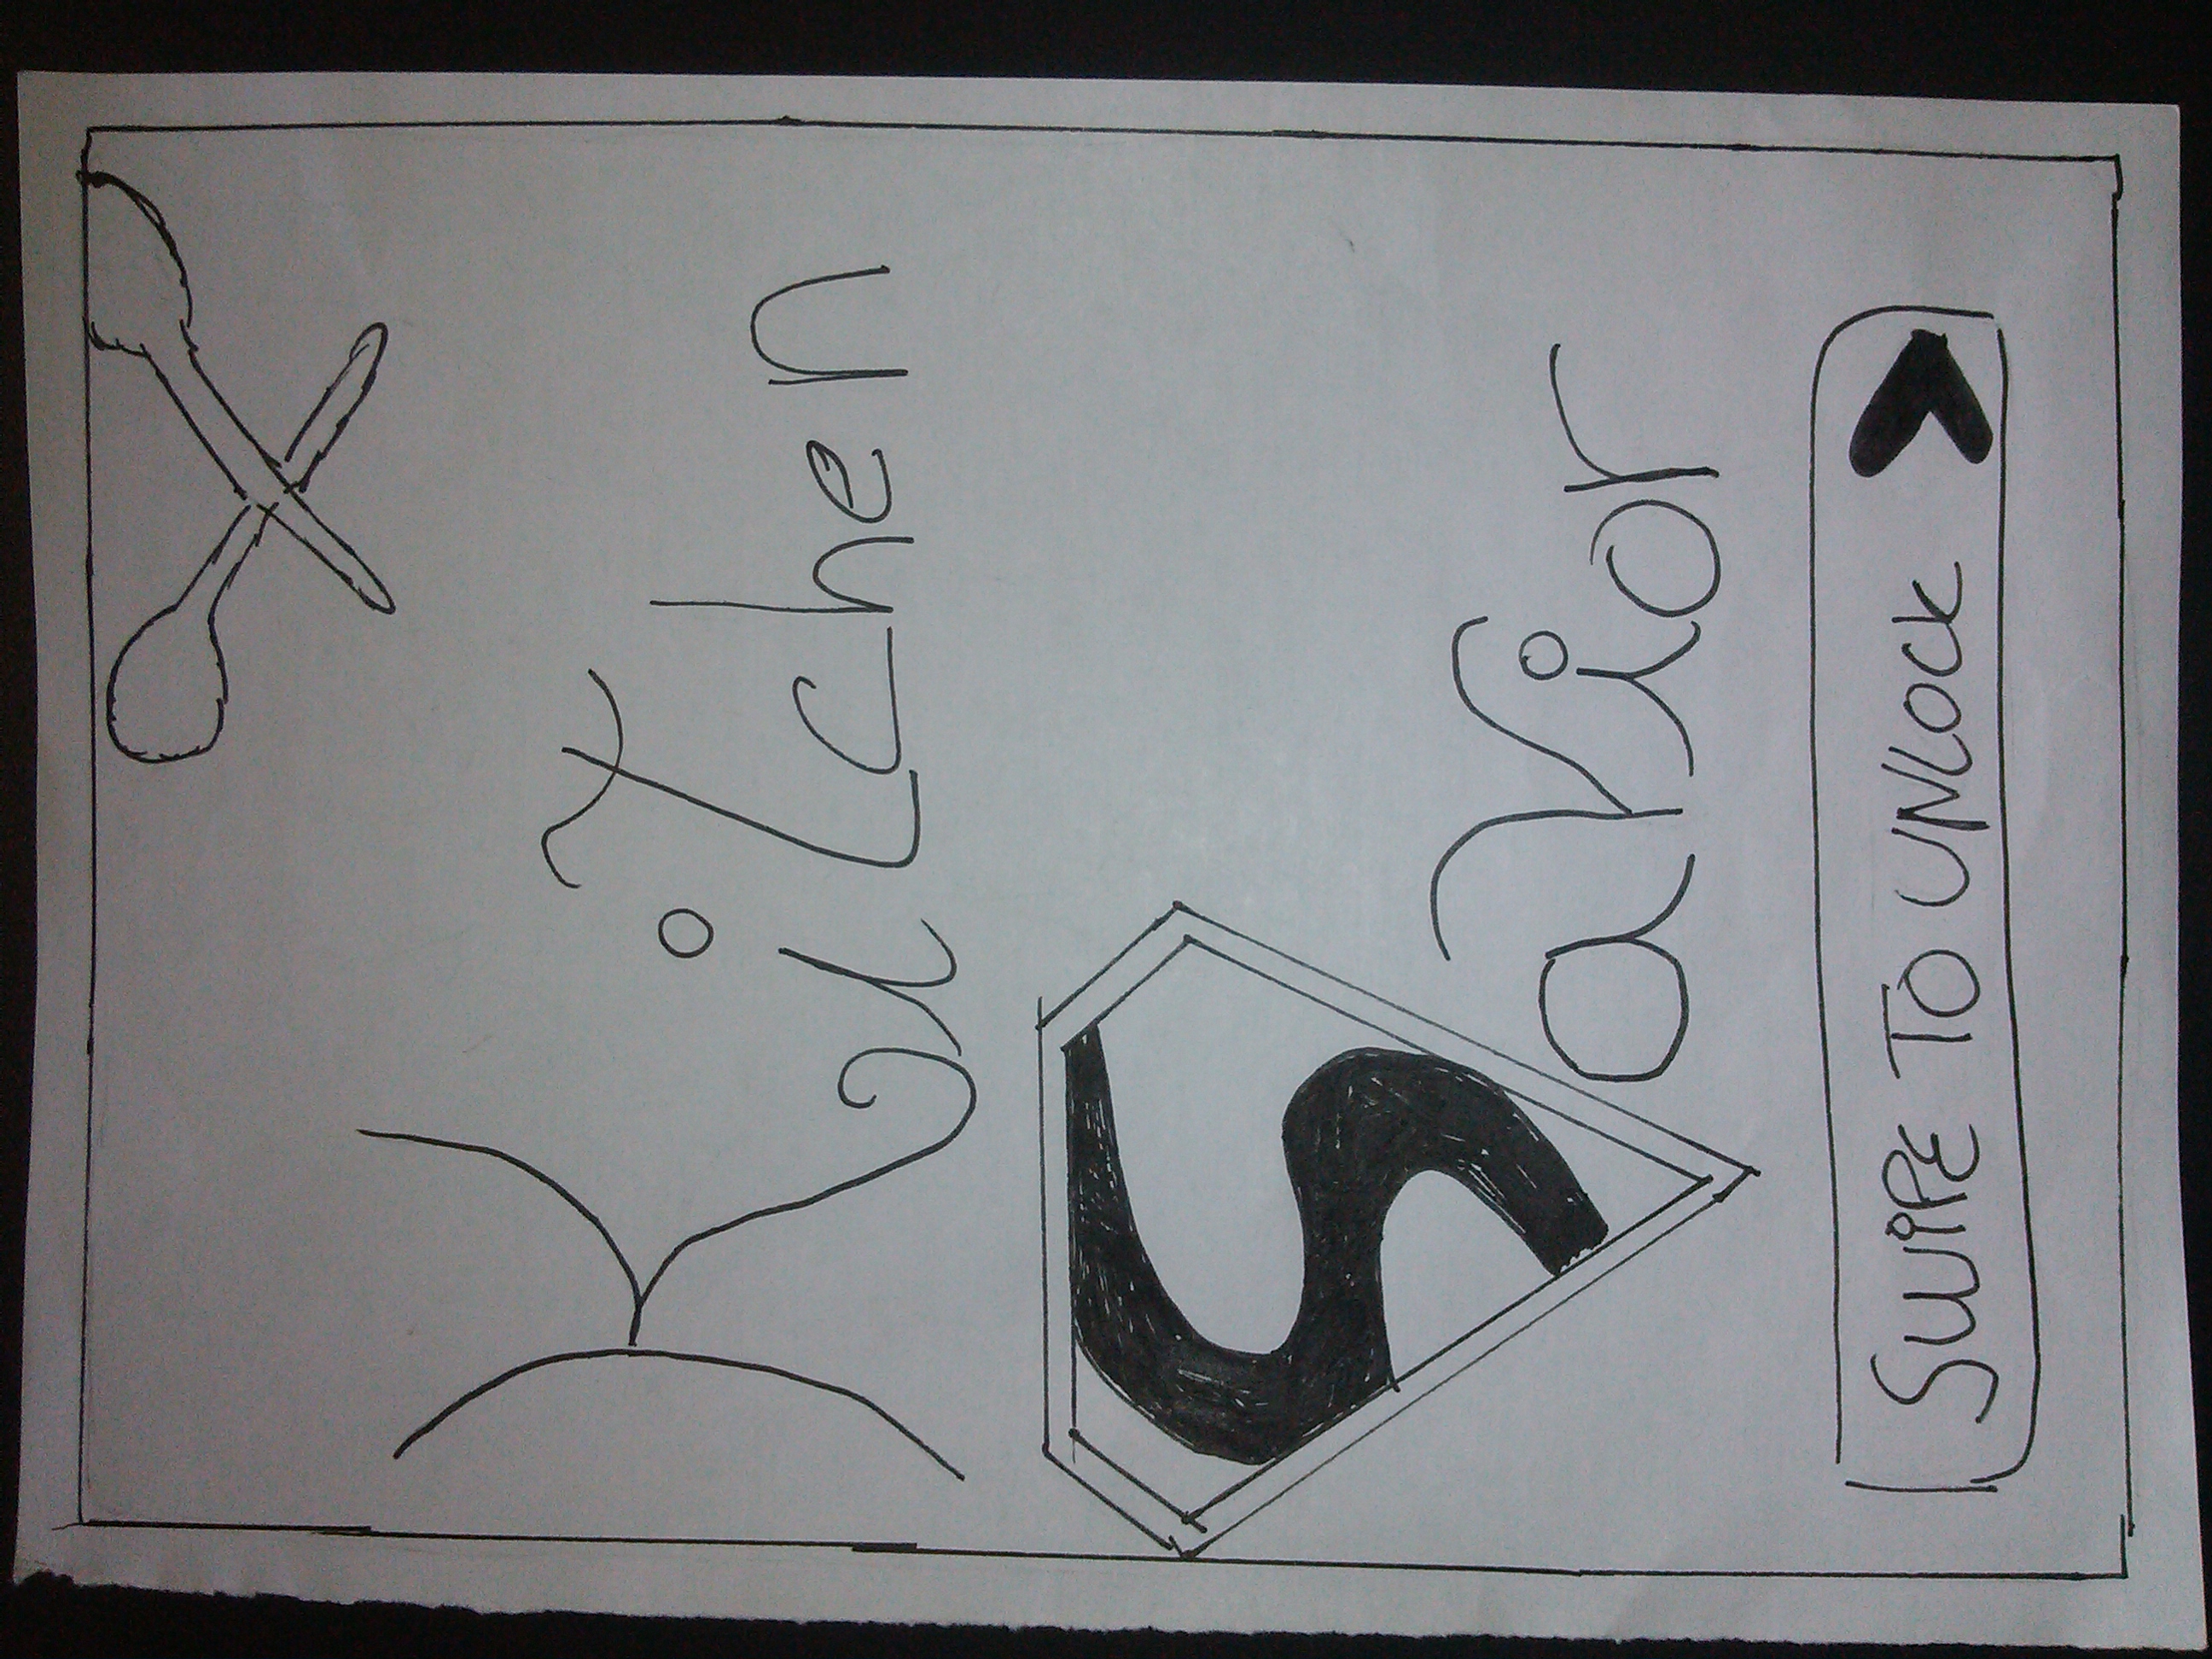 Kitchen
Savior
SWIPE TO UNLOCK >